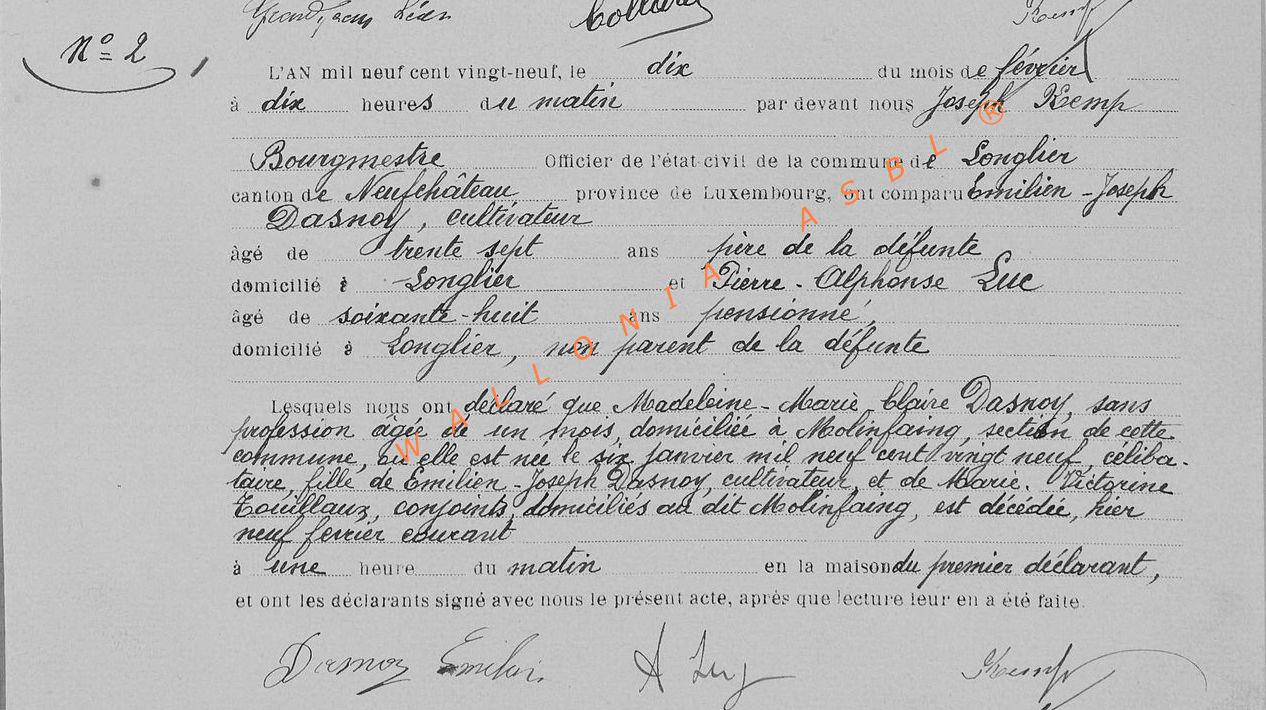 Grandjean Léon Kemp
Nº 2
L'AN mil neuf cent vingt-neuf, le dix du mois de février
à dix heures du matin par devant nous Joseph Kemp
Bourgmestre Officier de l'état civil de la commune de Longlier
canton de Neufchâteau, province de Luxembourg, ont comparu Emilien-Joseph
Dasnoy, cultivateur
âgé de trente sept ans père de la défunte
domicilié à Longlier et Pierre-Alphonse Luc
âgé de soixante-huit ans pensionné,
domicilié à Longlier, non parent de la défunte
Lesquels nous ont déclaré que Madeleine-Marie-Claire Dasnoy, sans
profession âgée de un mois, domiciliée à Molinfaing, section de cette
commune, où elle est née le six janvier mil neuf cent vingt neuf, céliba-
taire, fille de Emilien-Joseph Dasnoy, cultivateur, et de Marie-Victorine
conjoints, domiciliés au dit Molinfaing, est décédée, hier
neuf février courant
à une heure du matin en la maison du premier déclarant,
et ont les déclarants signé avec nous le présent acte, après que lecture leur en a été faite.
Dasnoy Emilien A Luc Kemp
WALLONIA ASBL ®